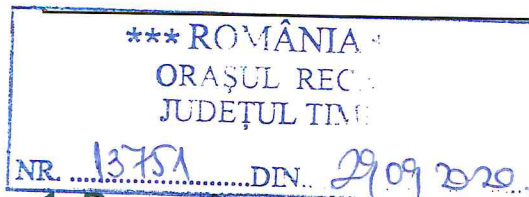 *** ROMÂNIA
ORAȘUL REC
JUDEȚUL TIM
NR. ....13751..............DIN.. 29 09 2020..